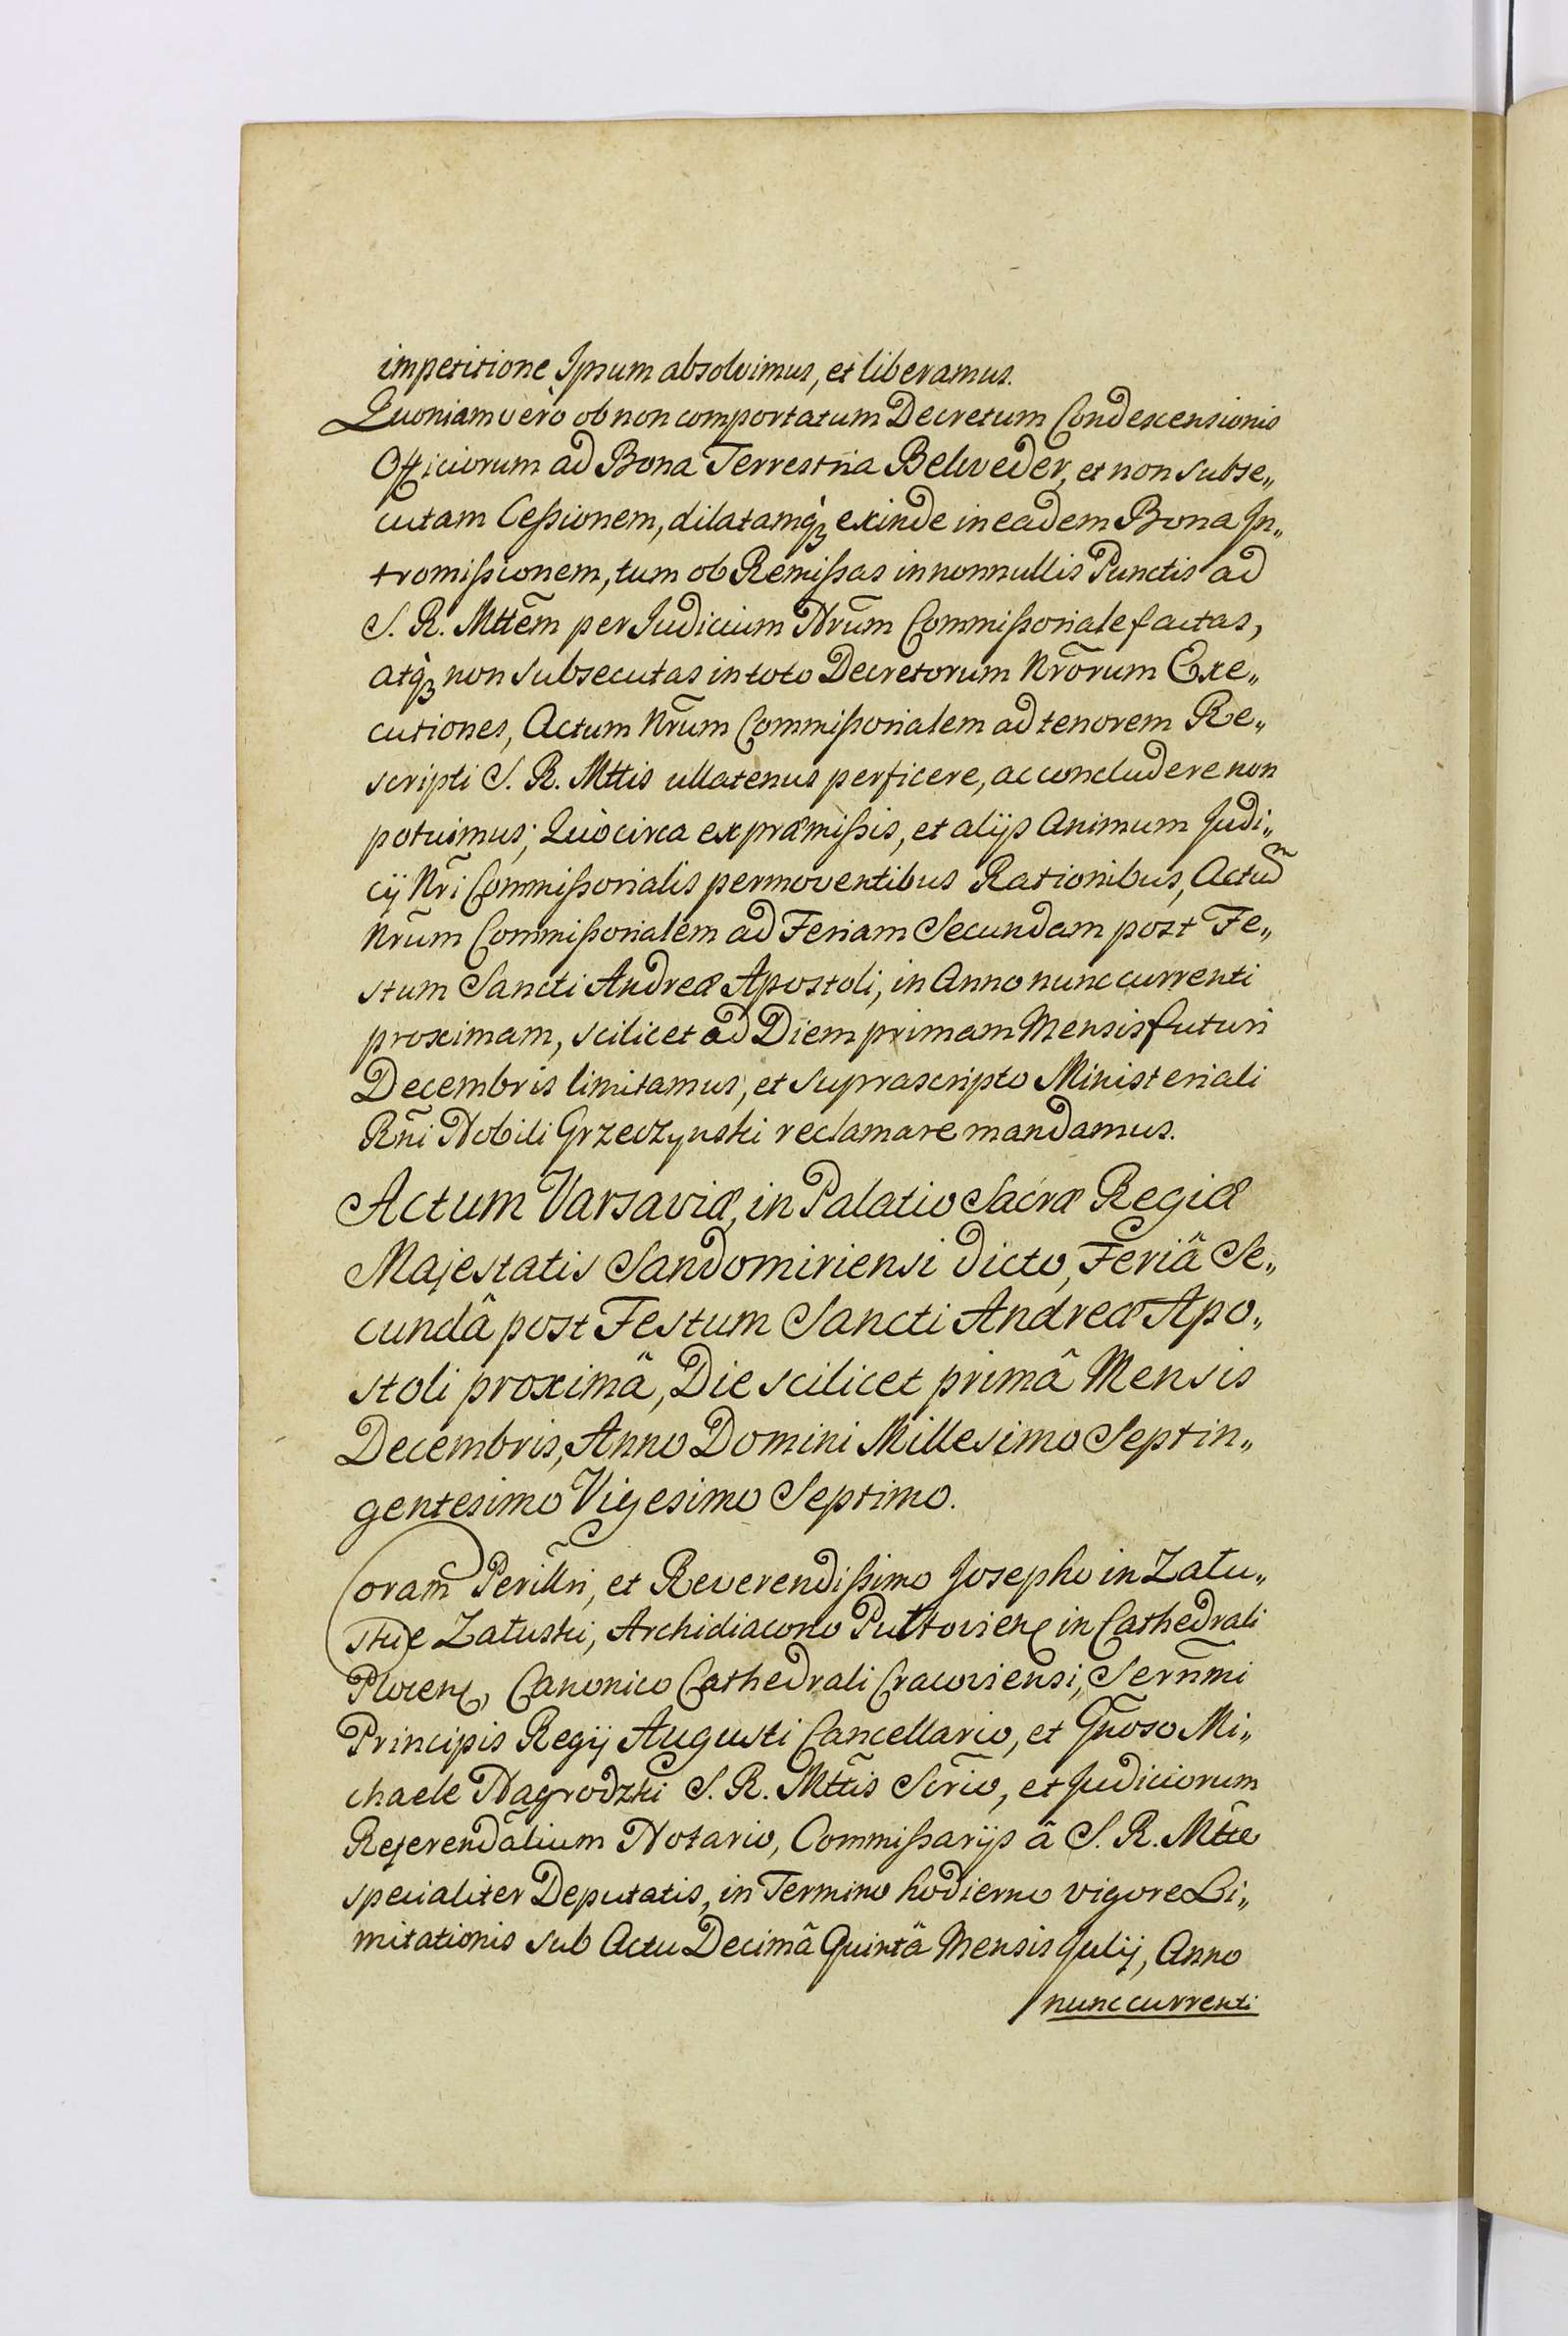 impetitione Ipsum absolvimus, et liberamus.
Quoniam verò ob non comportatum Decretum Condescensionis
Officiorum ad Bona Terrestria Belweder, et non subse„
cutam Ceßionem, dilatamq̀ꝫ exinde in eadem Bona In„
tromißionem, tum ob Remißas in nonnullis Punctis ad
S. R. Mttem̃ per Judicium Nrũm Commißoriale factas,
atq̀ꝫ non subsecutas in toto Decretorum Nrõrum Exe„
cutiones, Actum Nrũm Commißorialem ad tenorem Re„
scripti S. R. Mttis ullatenus perficere, ac concludere non
potuimus; Quòcirca ex præmißis, et alijs Animum Judi„
cij Nrĩ Commißorialis permoventibus Rationibus, Actum̃
Nrũm Commißorialem ad Feriam Secundam post Fe„
stum Sancti Andreæ Apostoli, in Anno nunc currenti
proximam, scilicet ad Diem primam Mensis futuri
Decembris limitamus, et suprascripto Ministeriali
Rñi Nobili Grzeczynski reclamare mandamus.
Actum Varsaviæ, in Palatio Sacræ Regiæ
Majestatis Sandomiriensi dicto, Feriâ Se„
cundâ post Festum Sancti Andreæ Apo„
stoli proximâ, Die scilicet primâ Mensis
Decembris, Anno Domini Millesimo Septin„
gentesimo Vigesimo Septimo.
Coram Perillr̃i, et Reverendißimo Josepho in Zału„
skie Załuski, Archidiacono Pułtovien̨ in Cathedrali
Plocen̨, Canonico Cathedrali Cracoviensi, Sern̄mi
Principis Regij Augusti Cancellario, et Gñoso Mi„
chaele Nagrodzki S. R. Mttĩs Scrĩo, et Judiciorum
Referendãlium Notario, Commißarijs â S. R. Mttẽ
specialiter Deputatis, in Termino hodierno vigore Li„
mitationis sub Actu Decimâ Quintâ Mensis Julij, Anno
nunc currenti